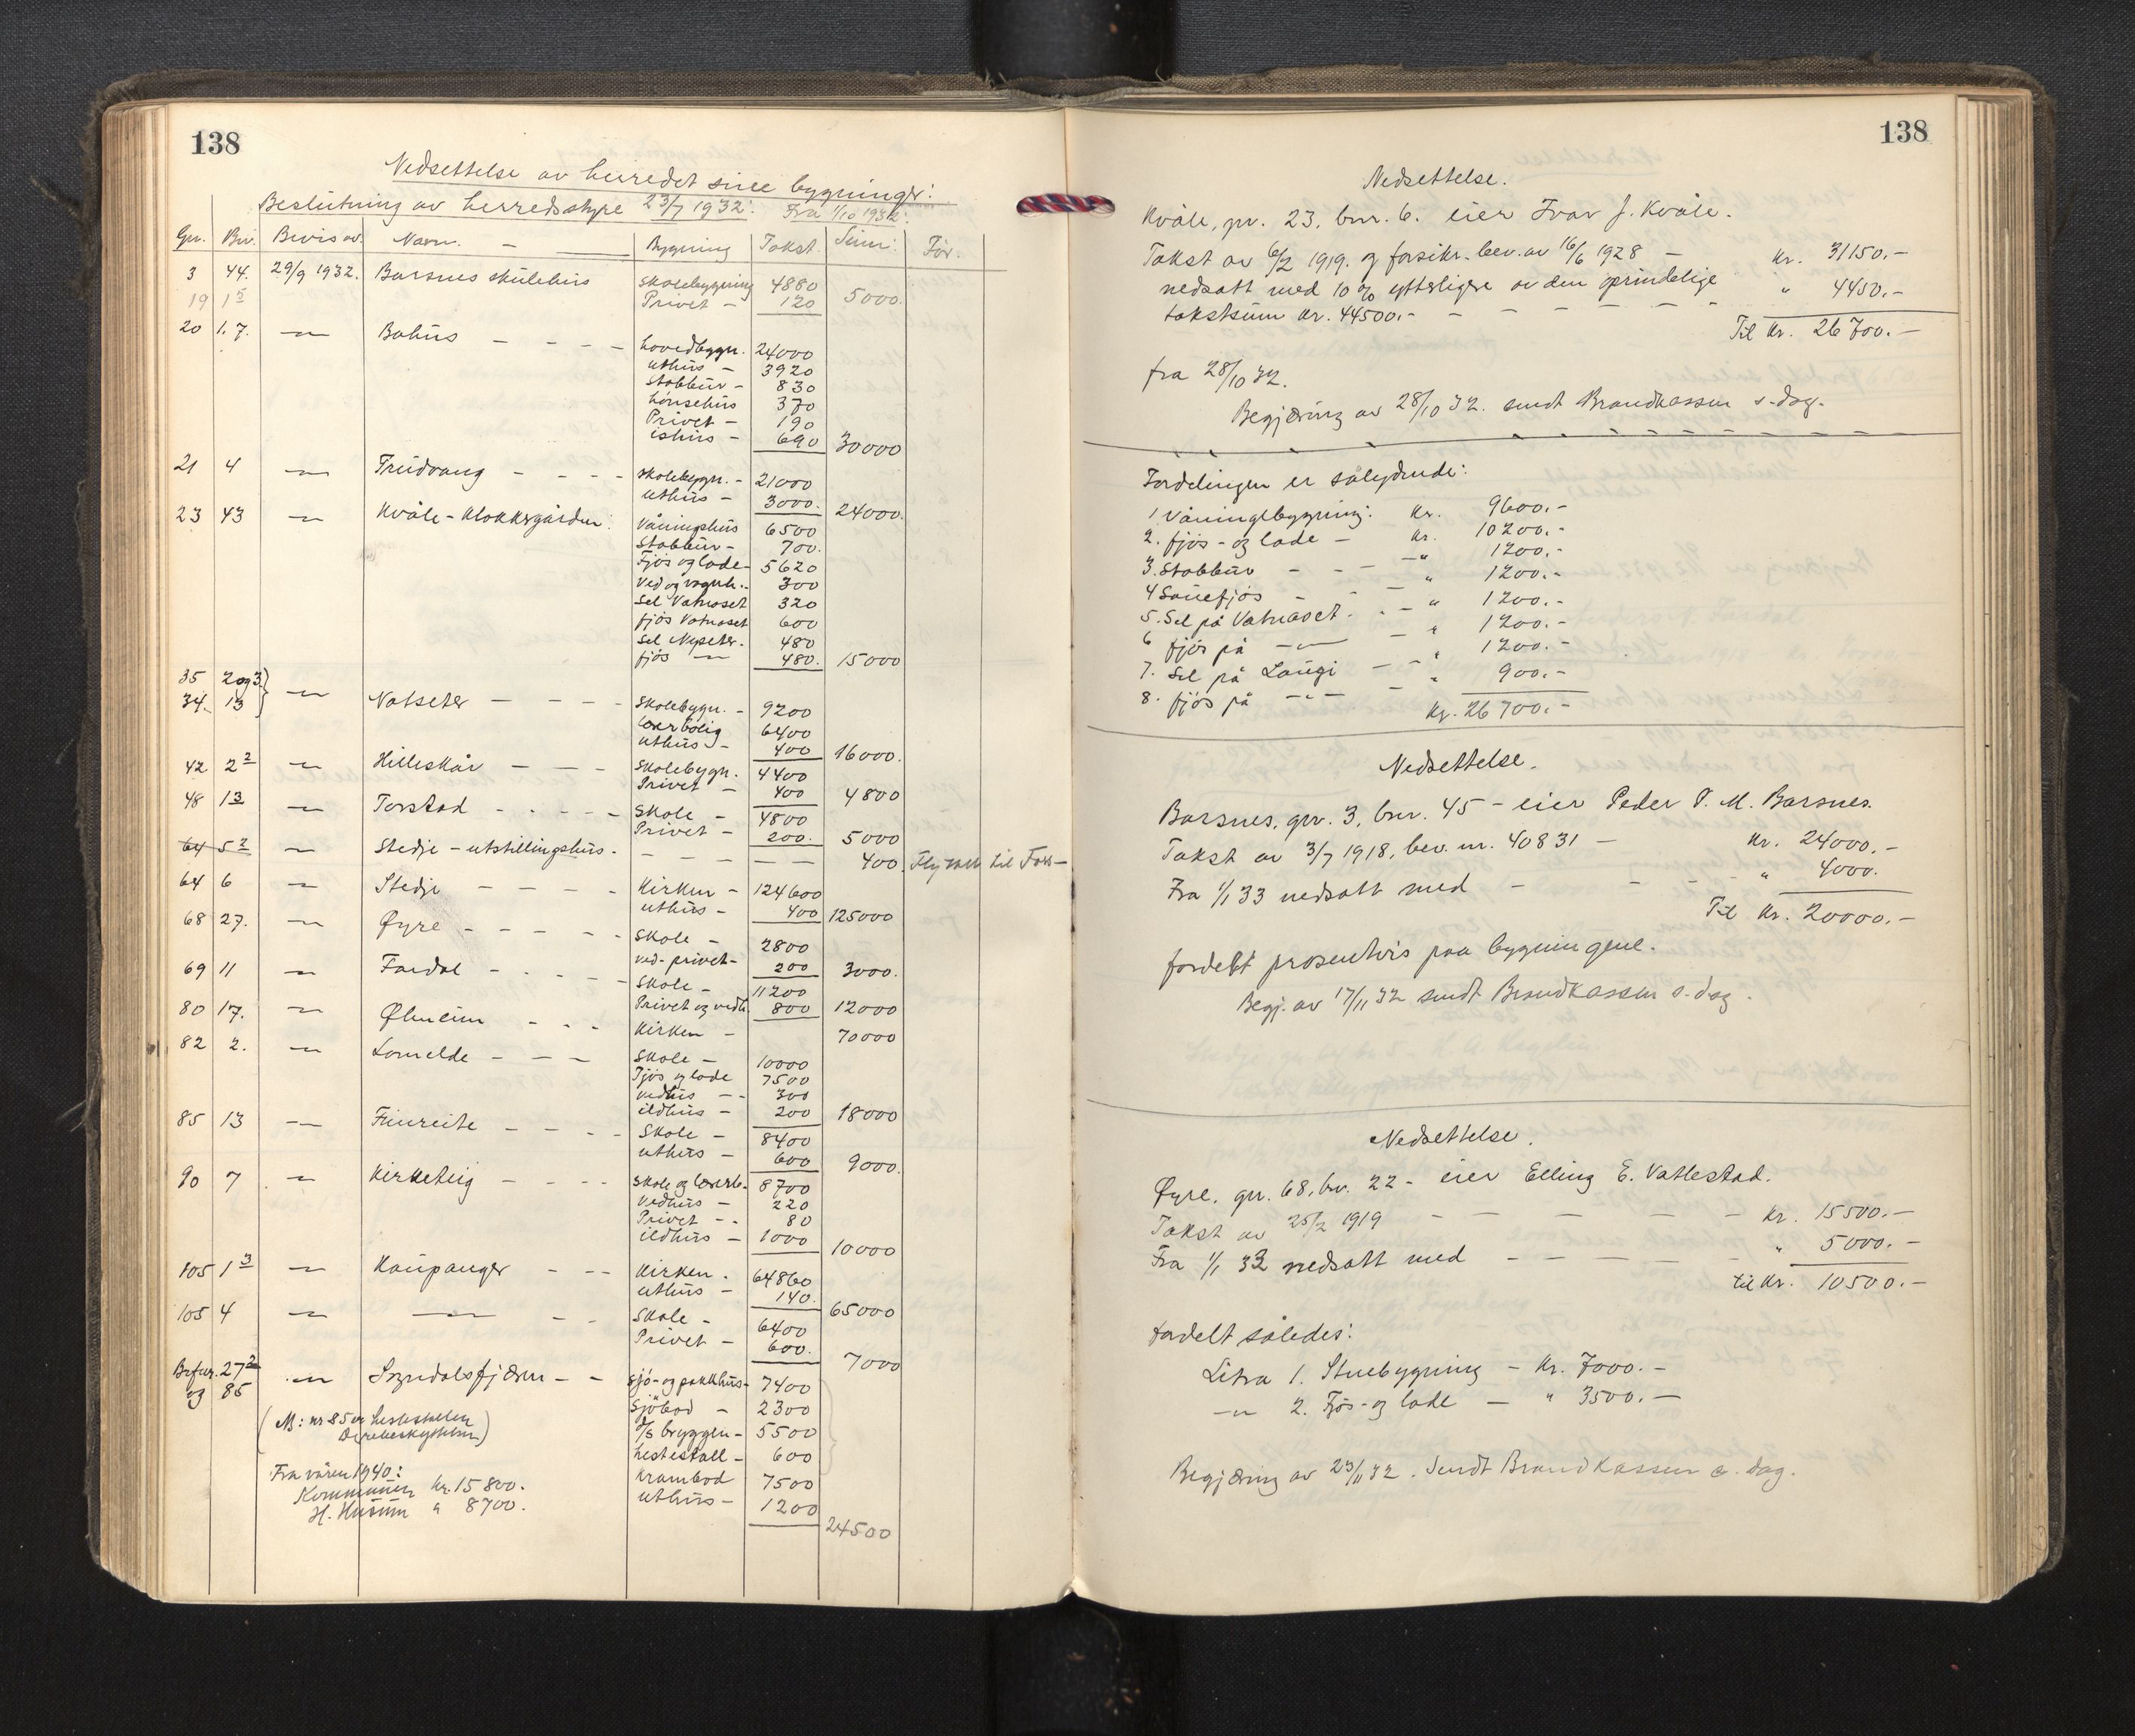 138
Nedsettelse av herredet sine bygninger:
Beslutning av herredsstyre 23/7 1932. Fra 1/10 1932.
Gnr. Bnr. Bevis av. Navn. — Bygning Takst. Sum: Før.
3 44. 29/9 1932. Barsnes skulehus skolebygning 4880
19 1⁵ Privet — 120 5000.
20 1.7. —"— Bahus — — — — hovedbygn. 24000
uthus — 3920
stabbur — 830
hønsehus 370
Privet — 190
ishus — 690 30000
21 4 —"— Trudvang — — — — skolebygn. — 21000
uthus — 3000. 24000.
23 43 —"— Kvåle - Klokkergården: Våningshus 6500
Stabbur — 700.
Fjøs og lade — 5620
Ved og vognh. — 300
Sel Vatnaset 320
fjøs Vatnaset 600
Sel Nyseter. 480
fjøs —"— 480. 15000
35 2 og 3 }
34. 13 } —"— Natseter — — — — Skolebygn. — 9200
lærerbolig 6400
uthus — 400 16000.
42 2² —"— Hilleskår — — — Skolebygn. 4400
Privet — 400 4800
48 13 —"— Torstad — — — — Skole — 4800
Privet — 200. 5000
64 5² —"— Stedje - utstillingshus. — — — — — 400.
64 6 —"— Stedje — — — — Kirken — 124600
uthus — 400 125000
68 27. —"— Øyre — — — — — Skole — 2800
ved- privet — 200 3000.
69 11 —"— Fardal — — — — Skole — 11200
Privet og vedh. 800 12000
80 17. —"— Ølmeim — — — Kirken — 70000
82 2. —"— Lomelde — — — Skole — 10000
Fjøs og lade 7500
vedhus — 300
ildhus — 200 18000
85 13 —"— Fimreite — — — — Skole — 8400
uthus — 600 9000.
90 7 —"— Kirketeig — — — — Skole og lærerb. 8700
Vedhus — 220
Privet — 80
ildhus — 1000 10000
105 1³ —"— Kaupanger — — — Kirken. 64860
uthus — 140. 65000
105 4 —"— —"— — — Skole — 6400
Privet — 600. 7000
Brfnr. 27² —"— Sogndalsfjæra — — sjø- og pakkhus — 7400
og 85 Sjøbod — 2300
(NB: nr 85 er
D/S bryggen — 5500
hestestall — 600
Krambod 7500
uthus — 1200
24500
Fra våren 1940:
Kommunen kr. 15800.
H. Husum " 8700.
138
Nedsettelse.
Kvåle, gnr. 23, bnr. 6. eier Ivar J. Kvåle.
Takst av 6/2 1919. og forsikr. bev. av 16/6 1928 — kr. 31150.—
nedsatt med 10% ytterligere av den oprindelige " 4450.—
takstsum kr. 44500.— — — — — —
Til kr. 26700.—
fra 28/10 32.
Begjæring av 28/10 32. sendt Brandkassen s. dag.
Fordelingen er sålydende:
1. Våningsbygning: kr. 9600.—
2. fjøs- og lade — kr. 10200.—
3. Stabbur — — — " 1200.—
4 Sauefjøs — — — " 1200.—
5. Sel på Vatnaset. — " 1200.—
6 fjøs på —"— — " 1200.—
7. Sel på Laugi — — " 1200.—
8. fjøs på —"— — " 900.—
Kr. 26700.—
Nedsettelse.
Barsnes, gnr. 3, bnr. 45 — eier Peder P. M. Barsnes.
Takst av 3/7 1918, bev. nr. 40831 — kr. 24000.—
Fra 1/1 33 nedsatt med — — — — " 4000.
Til kr. 20000.—
fordelt prosentvis paa bygningene.
Begj. av 17/11 32 sendt Brandkassen s. dag.
Nedsettelse.
Øyre, gnr. 68, bnr. 22 — eier Elling E. Vatlestad.
Takst av 25/2 1919 — — — — — — kr. 15500.—
Fra 1/1 33 nedsatt med — — — — — " 5000.—
til kr. 10500.—
fordelt således:
Litra 1. Stuebygning — kr. 7000.—
—"— 2. Fjøs- og lade — " 3500.—
Begjæring av 23/11 32. Sendt Brandkassen s. dag.